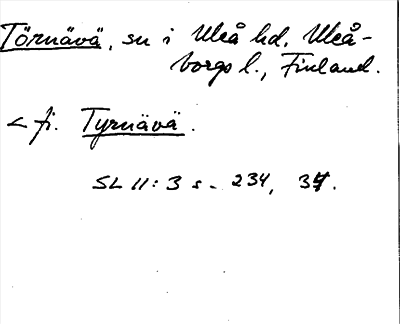 Törnävä, sn i Uleå hd, Uleå-
borgs l., Finland.
< fi. Tyrnävä.
SL II: 3 s. 234,